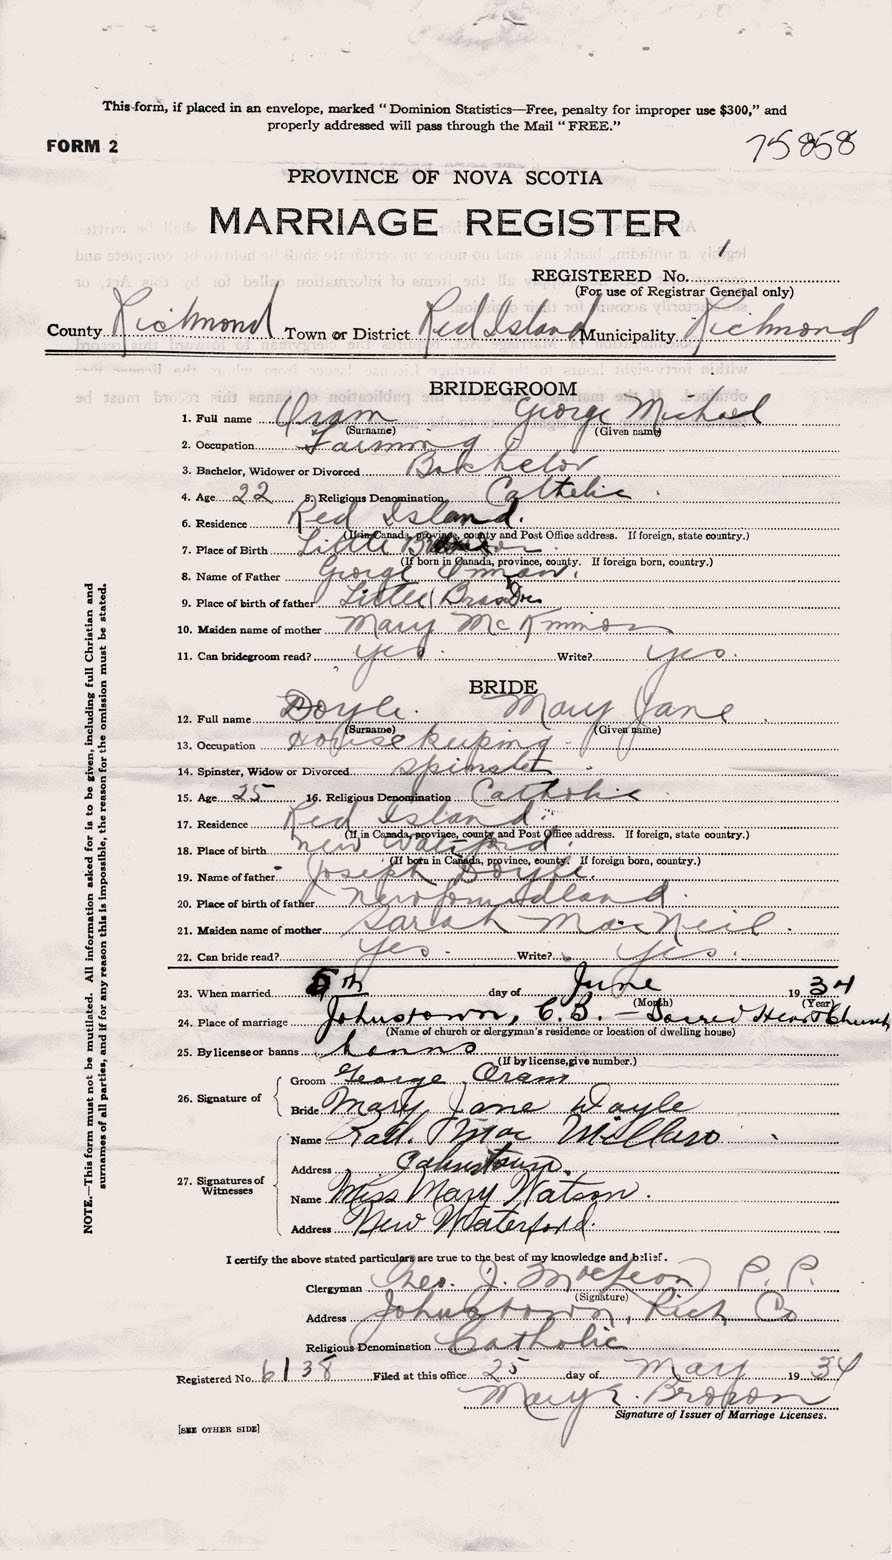 This form, if placed in an envelope, marked “ Dominion Statistics—Free, penalty for improper use $300,” and
properly addressed will pass through the Mail “ FREE.”
FORM 2
75858
PROVINCE OF NOVA SCOTIA
MARRIAGE REGISTER
REGISTERED No. 1
(For use of Registrar General only)
County Richmond Town or District Red Island Municipality Richmond
BRIDEGROOM
1. Full name Oram George Michael
(Surname) (Given name)
2. Occupation Farming
3. Bachelor, Widower or Divorced Bachelor
4. Age 22 5. Religious Denomination Catholic
6. Residence Red Island.
(If in Canada, province, county and Post Office address. If foreign, state country.)
7. Place of Birth Little
(If born in Canada, province, county. If foreign born, country.)
8. Name of Father George
9. Place of birth of father Little Bras Dor
10. Maiden name of mother Mary McKinnon
11. Can bridegroom read? yes. Write? yes.
BRIDE
12. Full name Doyle. Mary Jane
(Surname) (Given name)
13. Occupation Housekeeping
14. Spinster, Widow or Divorced spinster
15. Age 25 16. Religious Denomination Catholic
17. Residence Red Island
(If in Canada, province, county and Post Office address. If foreign, state country.)
18. Place of birth New Waterford
(If born in Canada, province, county. If foreign born, country.)
19. Name of father Joseph Doyle.
20. Place of birth of father Newfoundland.
21. Maiden name of mother Sarah MacNeil
22. Can bride read? Yes. Write? Yes.
23. When married 5th day of June 1934
(Month) (Year)
24. Place of marriage Johnstown, C.B. — Sacred Heart Church
(Name of church or clergyman's residence or location of dwelling house)
25. By license or banns banns
(If by license, give number.)
26. Signature of
Groom George Oram
Bride Mary Jane Doyle
27. Signatures of Witnesses
Name
Address Johnstown.
Name Miss Mary Watson.
Address New Waterford.
I certify the above stated particulars are true to the best of my knowledge and belief.
Clergyman Geo. J. MacLean P.P.
(Signature)
Address Johnstown, Rich. Co
Religious Denomination Catholic
Registered No. 6138 Filed at this office 25 day of May 1934
Mary E.
Signature of Issuer of Marriage Licenses.
[SEE OTHER SIDE]
NOTE.—This form must not be mutilated. All information asked for is to be given, including full Christian and
surnames of all parties, and if for any reason this is impossible, the reason for the omission must be stated.